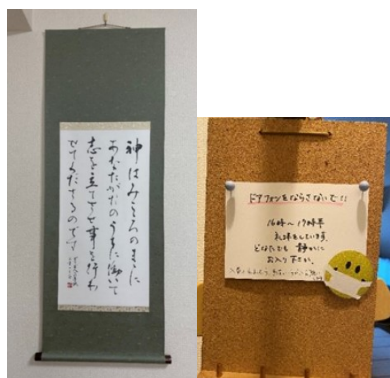 神はみこころのままに
あなたがたのうちに働いて
志を立てさせ事を行わ
せてくださるのです
ドアフォンをならさないで!!
16時〜17時半
礼拝をしています。
どなたでも 静かに
お入り下さい。